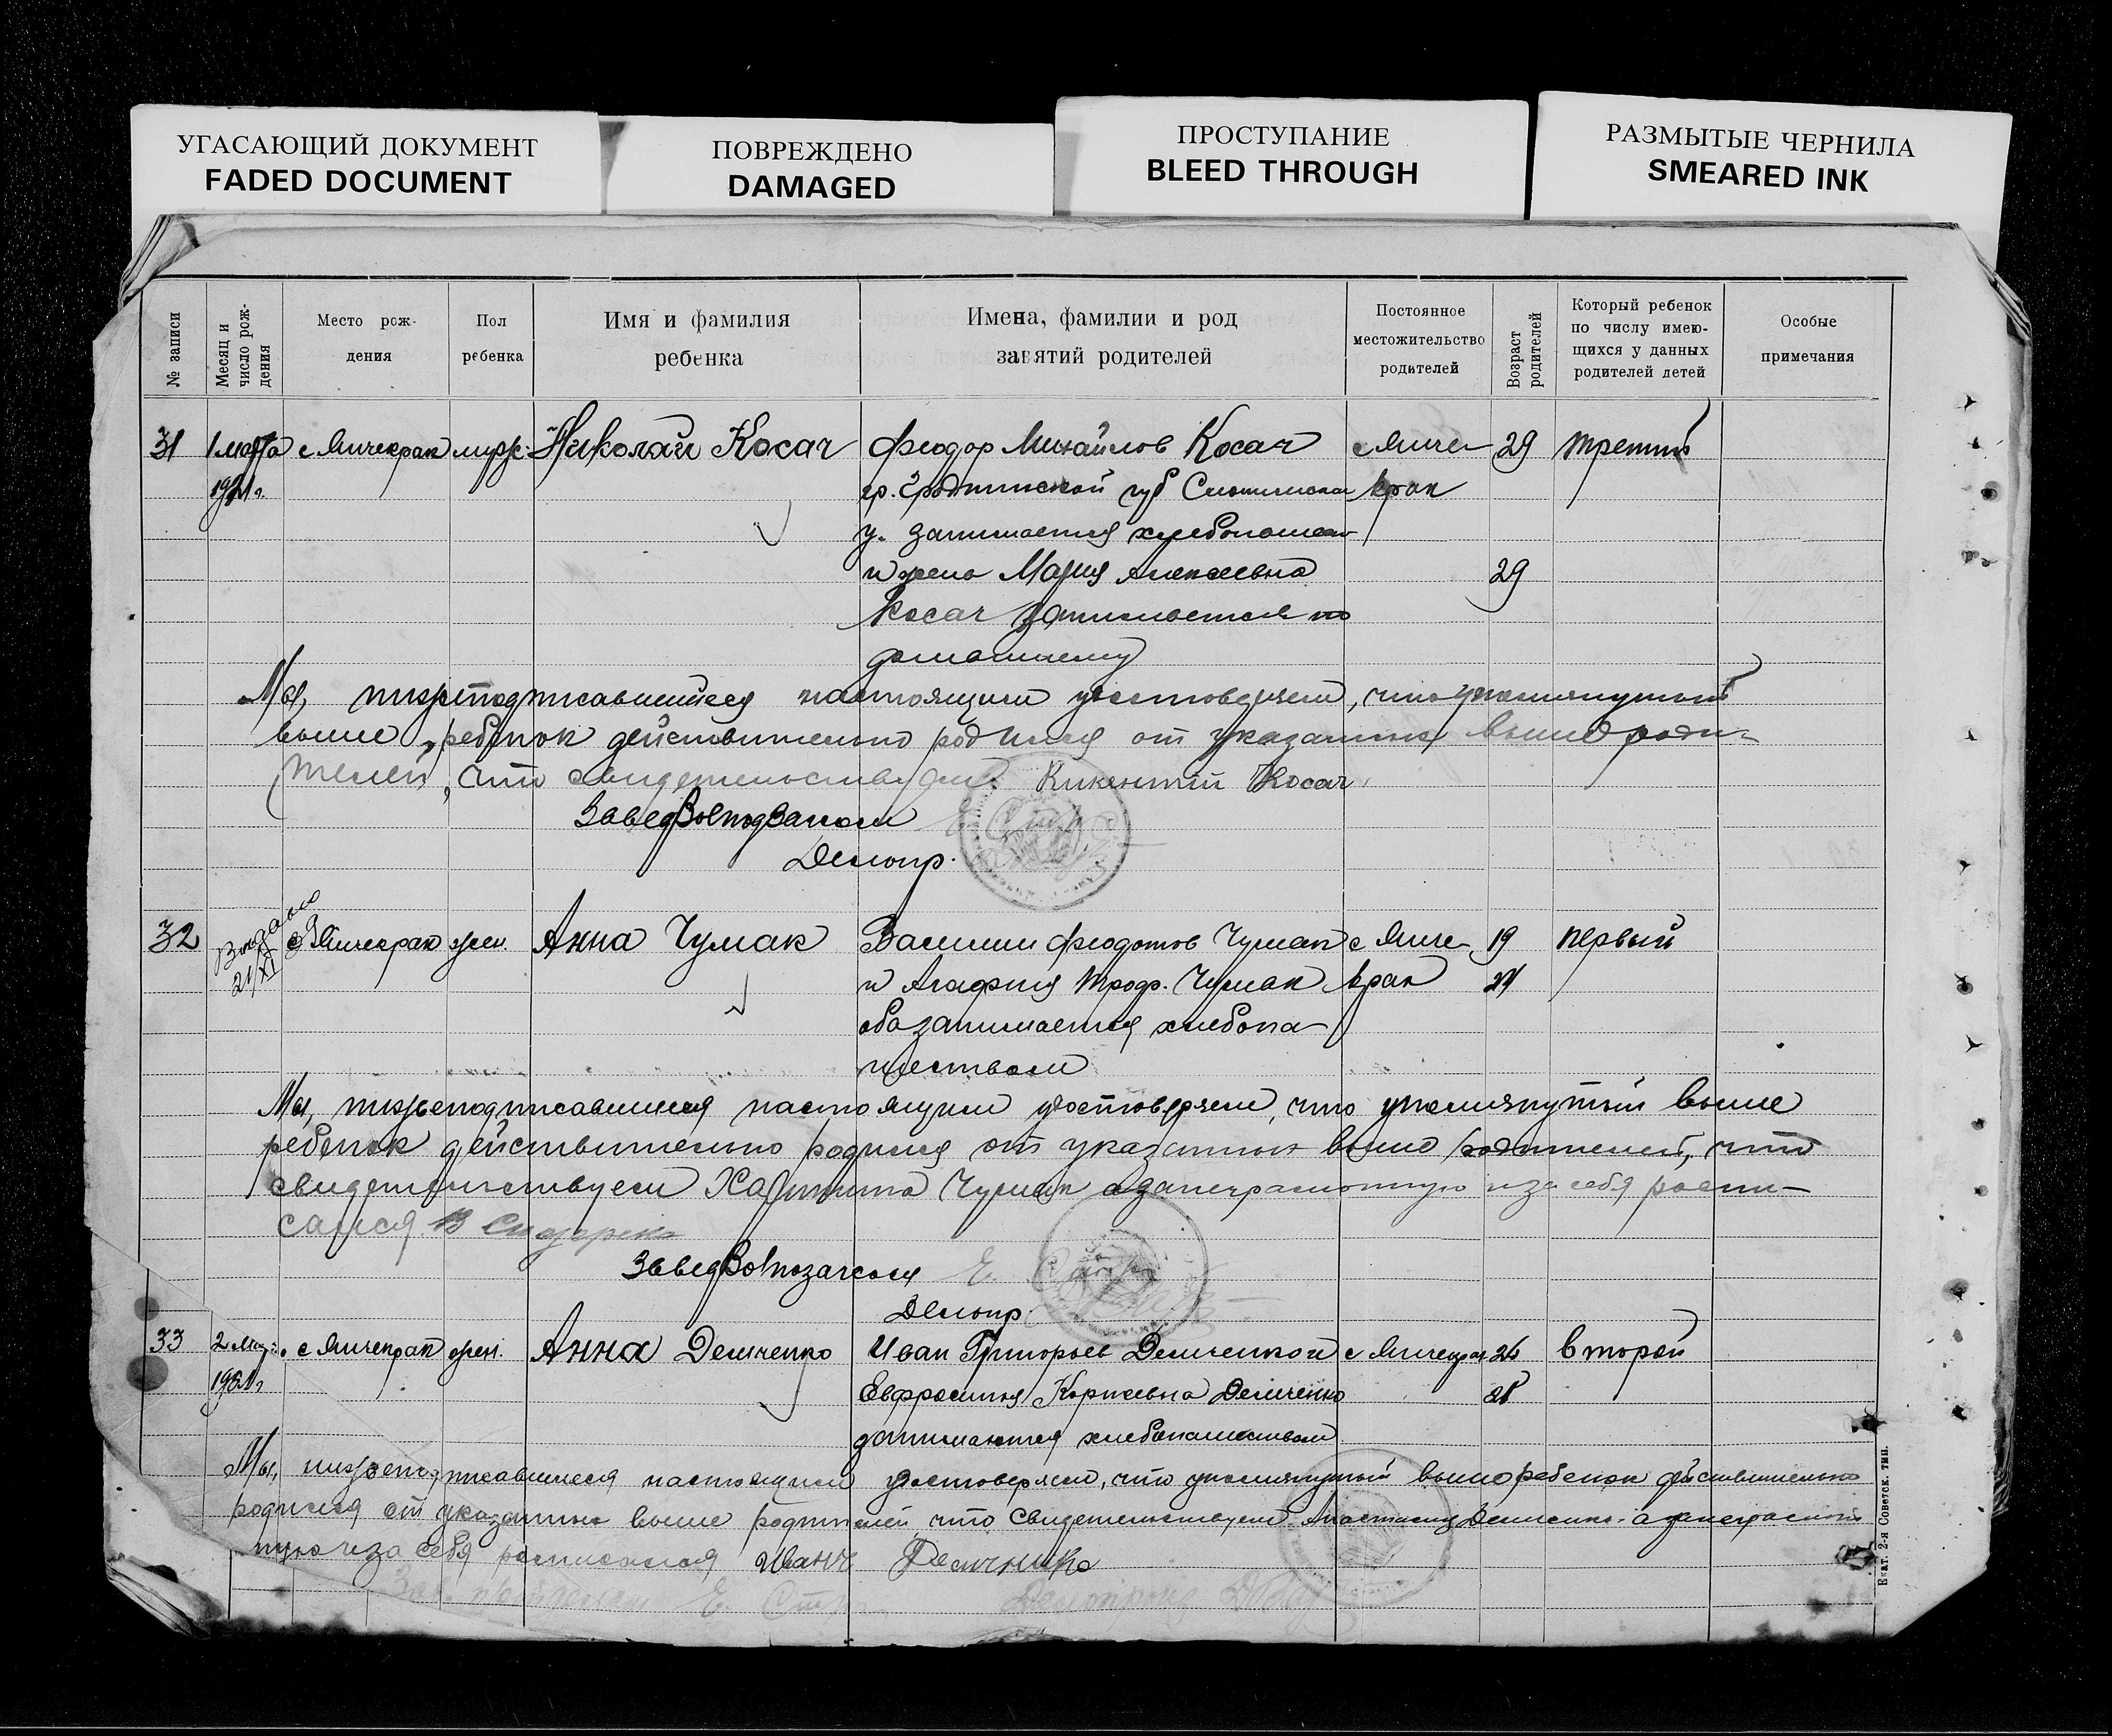 УГАСАЮЩИЙ ДОКУМЕНТ
FADED DOCUMENT
ПОВРЕЖДЕНО
DAMAGED
ПРОСТУПАНИЕ
BLEED THROUGH
РАЗМЫТЫЕ ЧЕРНИЛА
SMEARED INK
№ записи
Месяц и число рождения
Место рож-
дения
Пол
ребенка
Имя и фамилия
ребенка
Имена, фамилии и род
занятий родителей
Постоянное
местожительство
родителей
Возраст родителей
Который ребенок
по числу имею-
щихся у данных
родителей детей
Особые
примечания
31 1 марта с Янчекрак муж. Николай Косач Феодор Михайлов Косач с Янче- 29 третий
1921 г. гр. Гродненской губ крак
у. занимается хлебопаш
и жена Мария Алексеевна 29
Косач занимается по
домашнему
Мы, нижеподписавшиеся настоящим удостоверяем, что упомянутый
выше ребенок действительно родился от указанных выше роди-
телей, что свидетельствуем Косач
Делопр.
32 Выдано с Янчекрак жен. Анна Чумак Василий Феодотов Чумак с Янче- 19 первый
21/XI и Агафия Троф. Чумак крак 21
оба занимается хлебопа-
шеством
Мы, нижеподписавшиеся настоящим удостоверяем, что упомянутый выше
ребенок действительно родился от указанных выше родителей, что
свидетельствуем Харитина Чумак а за неграмотную и за себя распи-
сался. В Сидоренко
Делопр.
33 2 мар. с Янчекрак жен. Анна Демченко Иван Григорьев Демченко с Янчекрак 26 второй
1921 г. Евфросиния Корнеевна Демченко
занимаются хлебопашеством
Мы, нижеподписавшиеся настоящим удостоверяем, что упомянутый выше ребенок действительно
родился от указанных выше родителей, что свидетельствуем Анастасия Демченко а за неграмот
ную и за себя расписался Иван Демченко
Екат. 2-я Советск. тип.